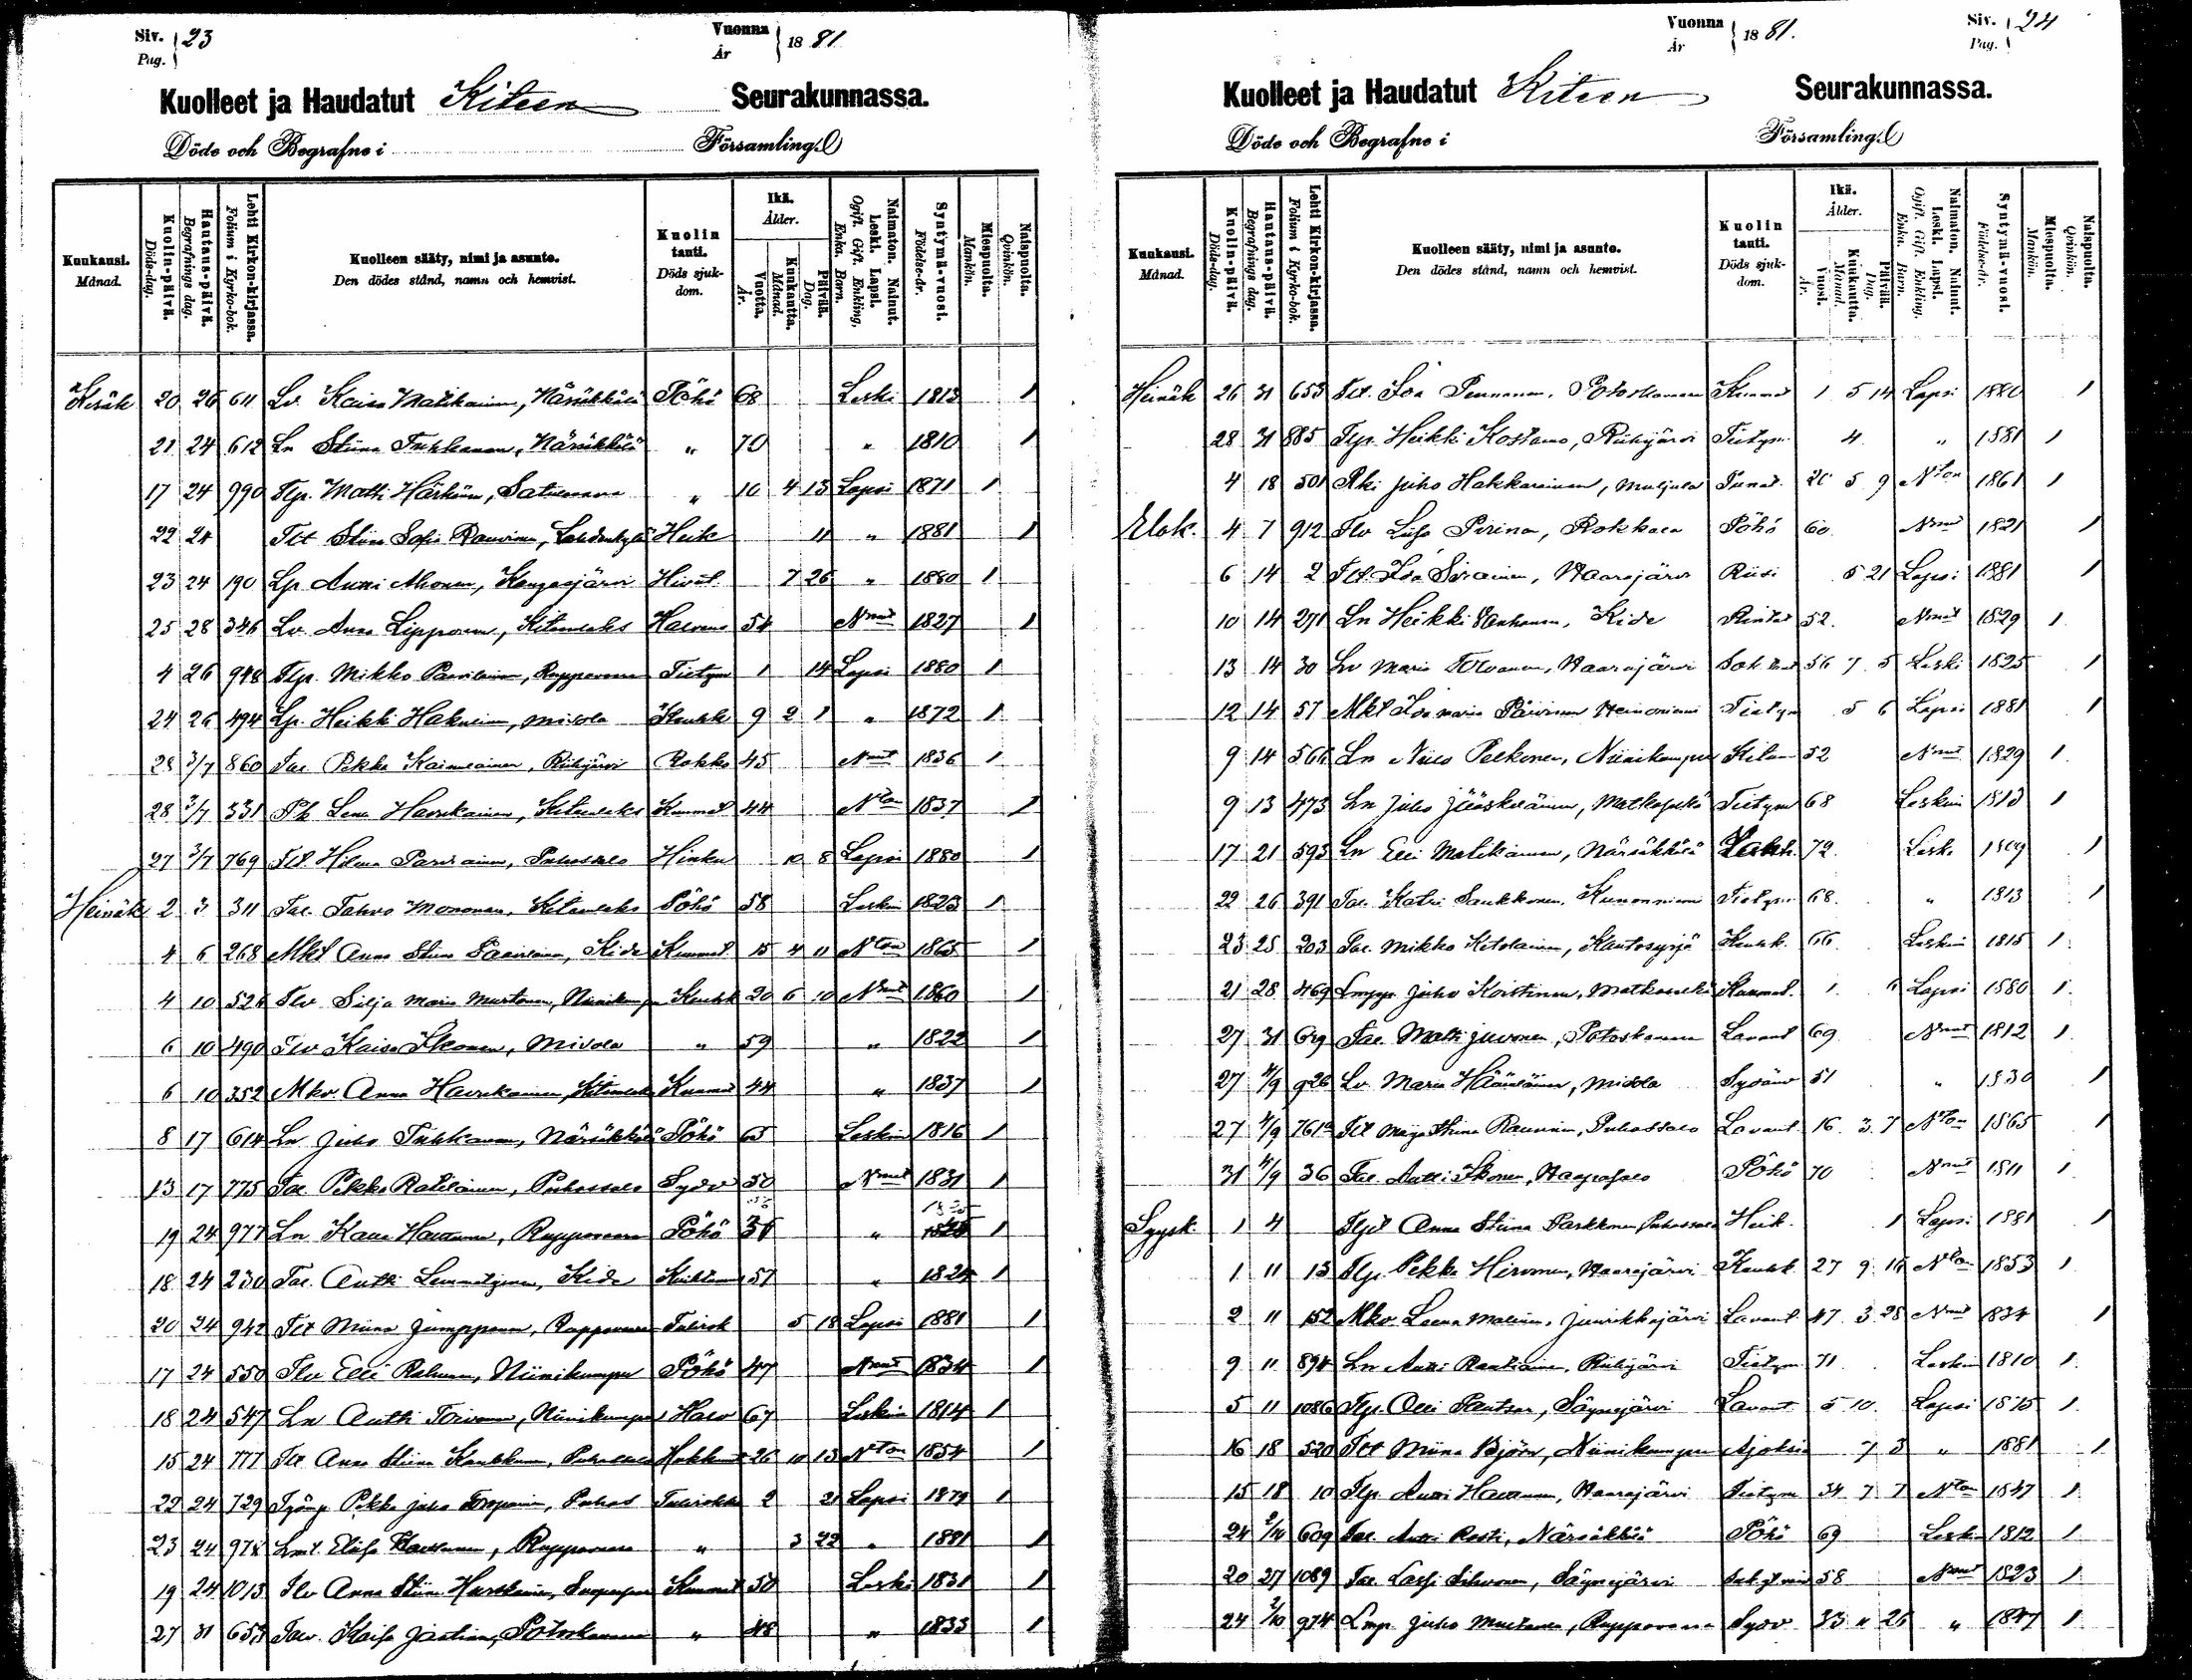 Siv. Pag. 23
Vuonna År 1881
Kuolleet ja Haudatut Kiteen Seurakunnassa.
Döde och Begrafne i Församling.
Kuukausi. Månad.
Kuolin-päivä. Döds-dag.
Hautaus-päivä. Begrafnings dag.
Lehti Kirkon-kirjassa. Folium i Kyrko-bok.
Kuolleen sääty, nimi ja asunto. Den dödes stånd, namn och hemvist.
Kuolin tauti. Döds sjuk-dom.
Ikä. Ålder.
Vuotta. År.
Kuukautta. Månad.
Päivää. Dag.
Naimaton. Nainut. Leski. Lapsi. Ogift. Gift. Enkling. Enka. Barn.
Syntymä-vuosi. Födelse-år.
Miespuolta. Mankön.
Naispuolta. Qvinkön.
Kesäk 20 26 611 Lv Kaisa Matikainen, Närsäkkälä Pöhö 68 Leski 1813 1
21 24 612 Ln Stiina Tukkanen, Närsäkkälä " 70 " 1810 1
17 24 990 Tlp. Matti Härkönen, Satulavaara " 10 4 13 Lapsi 1871 1
22 24 Tlt Stiina Sofia Rauvinen, Heik 11 " 1881 1
23 24 190 Lp Antti Ahonen, Kangasjärvi 7 26 " 1880 1
25 28 346 Lv. Anna Lipponen, Kiteenlaks 54 Nnut 1827 1
4 26 948 Tlp. Mikko Paavilainen, Ruppovaara Tietym 1 14 Lapsi 1880 1
24 26 494 Lp. Heikki Hakulinen, Misola Keuhk 9 2 1 " 1872 1
28 3/7 860 Tal. Pekka Kaimlainen, Riihijärvi Rokko 45 Nnut 1836 1
28 3/7 331 Lena Havukainen, Kitenlaks Kummal 44 Nton 1837 1
27 3/7 769 Tlt. Hilma Parviainen, Puhossalo Hinku 10 8 Lapsi 1880 1
Heinäk 2 3 311 Tal. Tahvo Mononen, Kitenlaks Pöhö 58 Leskin 1823 1
4 6 268 Mkt Anna Stiina Paavilainen, Kide Kummal 15 4 11 Nton 1865 1
4 10 526 Tlv Silja Maria Murtonen, Niinikumpu Keuhk 20 6 10 Nnut 1860 1
6 10 490 Tlv Kaisa Ikonen, Misola " 59 " 1822 1
6 10 352 Mkv. Anna Havukainen, Kitenlaks Kummal 44 " 1837 1
8 17 614 Ln Juho Tukkanen, Närsäkkälä Pöhö 65 Leskin 1816 1
13 17 775 Tal Pekka Ratilainen, Puhossalo Sydv 50 Nnut 1831 1
19 24 977 Ln Havanen, Ruppovaara Pöhö " 1
18 24 230 Tal. Antti Lemmetyinen, Kide 57 " 1824 1
20 24 942 Tlt Miina Jumppanen, Ruppovaara Tulirok 5 18 Lapsi 1881 1
17 24 550 Tlv Elli Rahunen, Niinikumpu Pöhö 47 Nnut 1834 1
18 24 547 Ln Antti Toivanen, Niinikumpu Haav 67 Leskin 1814 1
15 24 777 Tlt Anna Stiina Kaukkonen, Puhossalo Hukkunut 26 10 13 Nton 1854 1
22 24 729 Pekka Juho Tropanin, Puhos Tulirokko 2 21 Lapsi 1879 1
23 24 978 Lmt. Elisa Havanen, Ruppovaara " 3 22 " 1881 1
19 24 1013 Tlv Anna Stiina Hurskainen, Kummal 50 Leski 1831 1
27 31 653 Talv. Kaisa Jantinen, Potoskavaara " 48 " 1833 1
Siv. Pag. 24
Vuonna År 1881.
Kuolleet ja Haudatut Kiteen Seurakunnassa.
Döde och Begrafne i Församling.
Kuukausi. Månad.
Kuolin-päivä. Döds-dag.
Hautaus-päivä. Begrafnings dag.
Lehti Kirkon-kirjassa. Folium i Kyrko-bok.
Kuolleen sääty, nimi ja asunto. Den dödes stånd, namn och hemvist.
Kuolin tauti. Döds sjuk-dom.
Ikä. Ålder.
Vuosi. År.
Kuukautta. Månad.
Päivää. Dag.
Naimaton. Nainut. Leski. Lapsi. Ogift. Gift. Enkling. Enka. Barn.
Syntymä-vuosi. Födelse-år.
Miespuolta. Mankön.
Naispuolta. Qvinkön.
Heinäk 26 31 653 Tlt. Ida Pennanen, Potoskavaara Kummal 1 5 14 Lapsi 1880 1
28 31 885 Tlp. Heikki Kostamo, Riihijärvi Tietym 4 " 1881 1
4 18 501 Rki Juho Hakkarainen, Muljula 20 5 9 Nton 1861 1
Elok. 4 7 912 Tlv Liisa Pirinen, Rokkala Pöhö 60 Nnut 1821 1
6 14 2 Tlt. Ida Sirainen, Haarajärvi Riisi 5 21 Lapsi 1881 1
10 14 271 Ln Heikki Vanhanen, Kide Rintat 52 Nnut 1829 1
13 14 30 Lv Maria Tolvanen, Haarajärvi 56 7 5 Leski 1825 1
12 14 57 Mkt Ida Maria Päivinen Heinoniemi Tietym 5 6 Lapsi 1881 1
9 14 566 Ln Niilo Pelkonen, Niinikumpu 52 Nnut 1829 1
9 13 473 Ln Juho Jääskeläinen, Matkaselkä Tietym 68 Leskin 1813 1
17 21 593 Ln Elli Matikainen, Närsäkkälä 72 Leski 1809 1
22 26 391 Tal. Katri Saukkonen, Kunonniemi Tietym 68 " 1813 1
23 25 203 Tal. Mikko Kitolainen, Kantosyrjä Keuhk. 66 Leskin 1815 1
21 28 469 Juho Koistinen, Matkaselkä Kummal. 1 6 Lapsi 1880 1
27 31 629 Tal. Matti Juvonen, Potoskavaara Lavant 69 Nnut 1812 1
27 4/9 926 Lv. Maria Hämäläinen, Misola 51 " 1830 1
27 4/9 761 Tlt Maija Stiina Rauvinen, Puhossalo Lavant 16 3 7 Nton 1865 1
31 4/9 36 Tal. Antti Ikonen, Haapasalo Pöhö 70 Nnut 1811 1
Syysk. 1 4 Anna Stiina Parkkonen, Puhossalo Heik. 1 Lapsi 1881 1
1 11 13 Tlp. Pekka Hirvonen, Haarajärvi Keuhk 27 9 16 Nton 1853 1
2 11 152 Mkv. Leena Malinen, Juurikkajärvi Lavant 47 3 28 Nnut 1834 1
9 11 894 Ln Antti Rautiainen, Riihijärvi Tietym 71 Leskin 1810 1
5 11 1086 Tlp. Olli Pantsar, Säynejärvi Lavant 5 10 Lapsi 1875 1
16 18 520 Tlt Miina Björn, Niinikumpu Ajoksia 7 3 " 1881 1
15 18 10 Tlp. Antti Havanen, Haarajärvi Tietym 34 7 7 Nton 1847 1
24 2/10 609 Tal. Antti Rosti, Närsäkkälä Pöhö 69 Leskin 1812 1
20 27 1089 Tal. Lassi Silvonen, Säynejärvi 58 Nnut 1823 1
24 2/10 974 Lmp. Juho Mustonen, Ruppovaara Sydv 33 11 26 " 1847 1